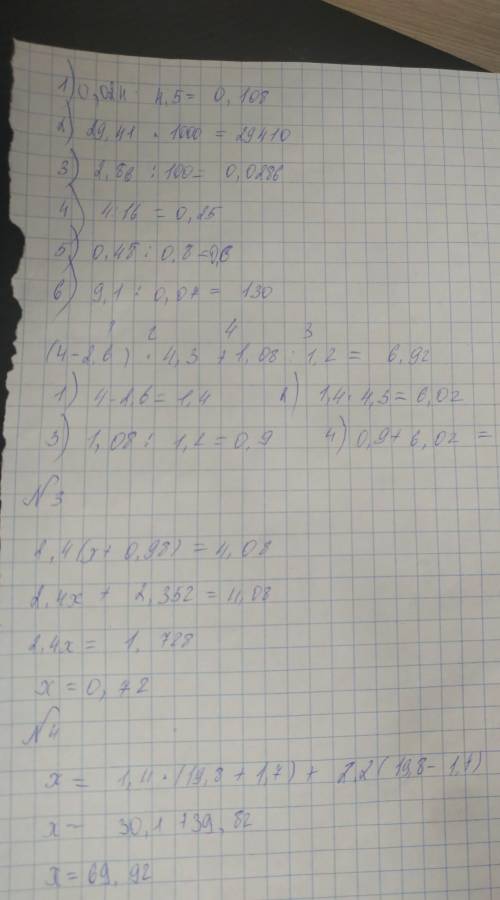 1) 0,024 · 4,5 = 0,108
2) 29,41 · 1000 = 29410
3) 2,86 : 100 = 0,0286
4) 4:16 = 0,25
5) 0,48 : 0,8 = 0,6
6) 9,1 : 0,07 = 130
1 2 4 3
(4-2,6) · 4,3 + 1,08 : 1,2 = 6,92
1) 4-2,6 = 1,4 2) 1,4 · 4,3 = 6,02
3) 1,08 : 1,2 = 0,9 4) 0,9 + 6,02 =
N3
2,4(x + 0,98) = 4,08
2,4x + 2,352 = 4,08
2,4x = 1,728
x = 0,72
N4
x = 1,4 · (19,8 + 1,7) + 2,2(19,8 - 1,7)
x = 30,1 + 39,82
x = 69,92